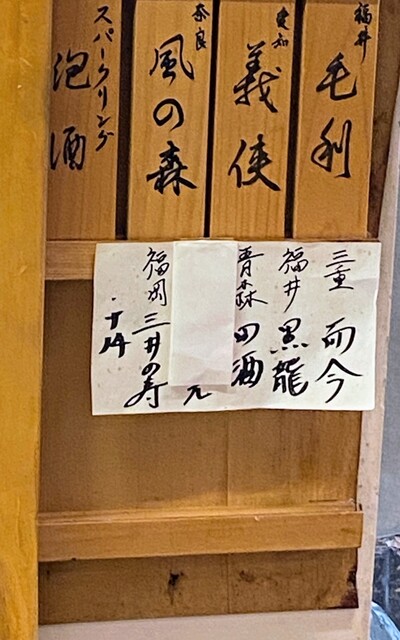 福井 毛利
愛知 義侠
奈良 風の森
スパークリング
泡酒
三重 而今
福井 黒龍
青森 田酒
福岡 三井の寿